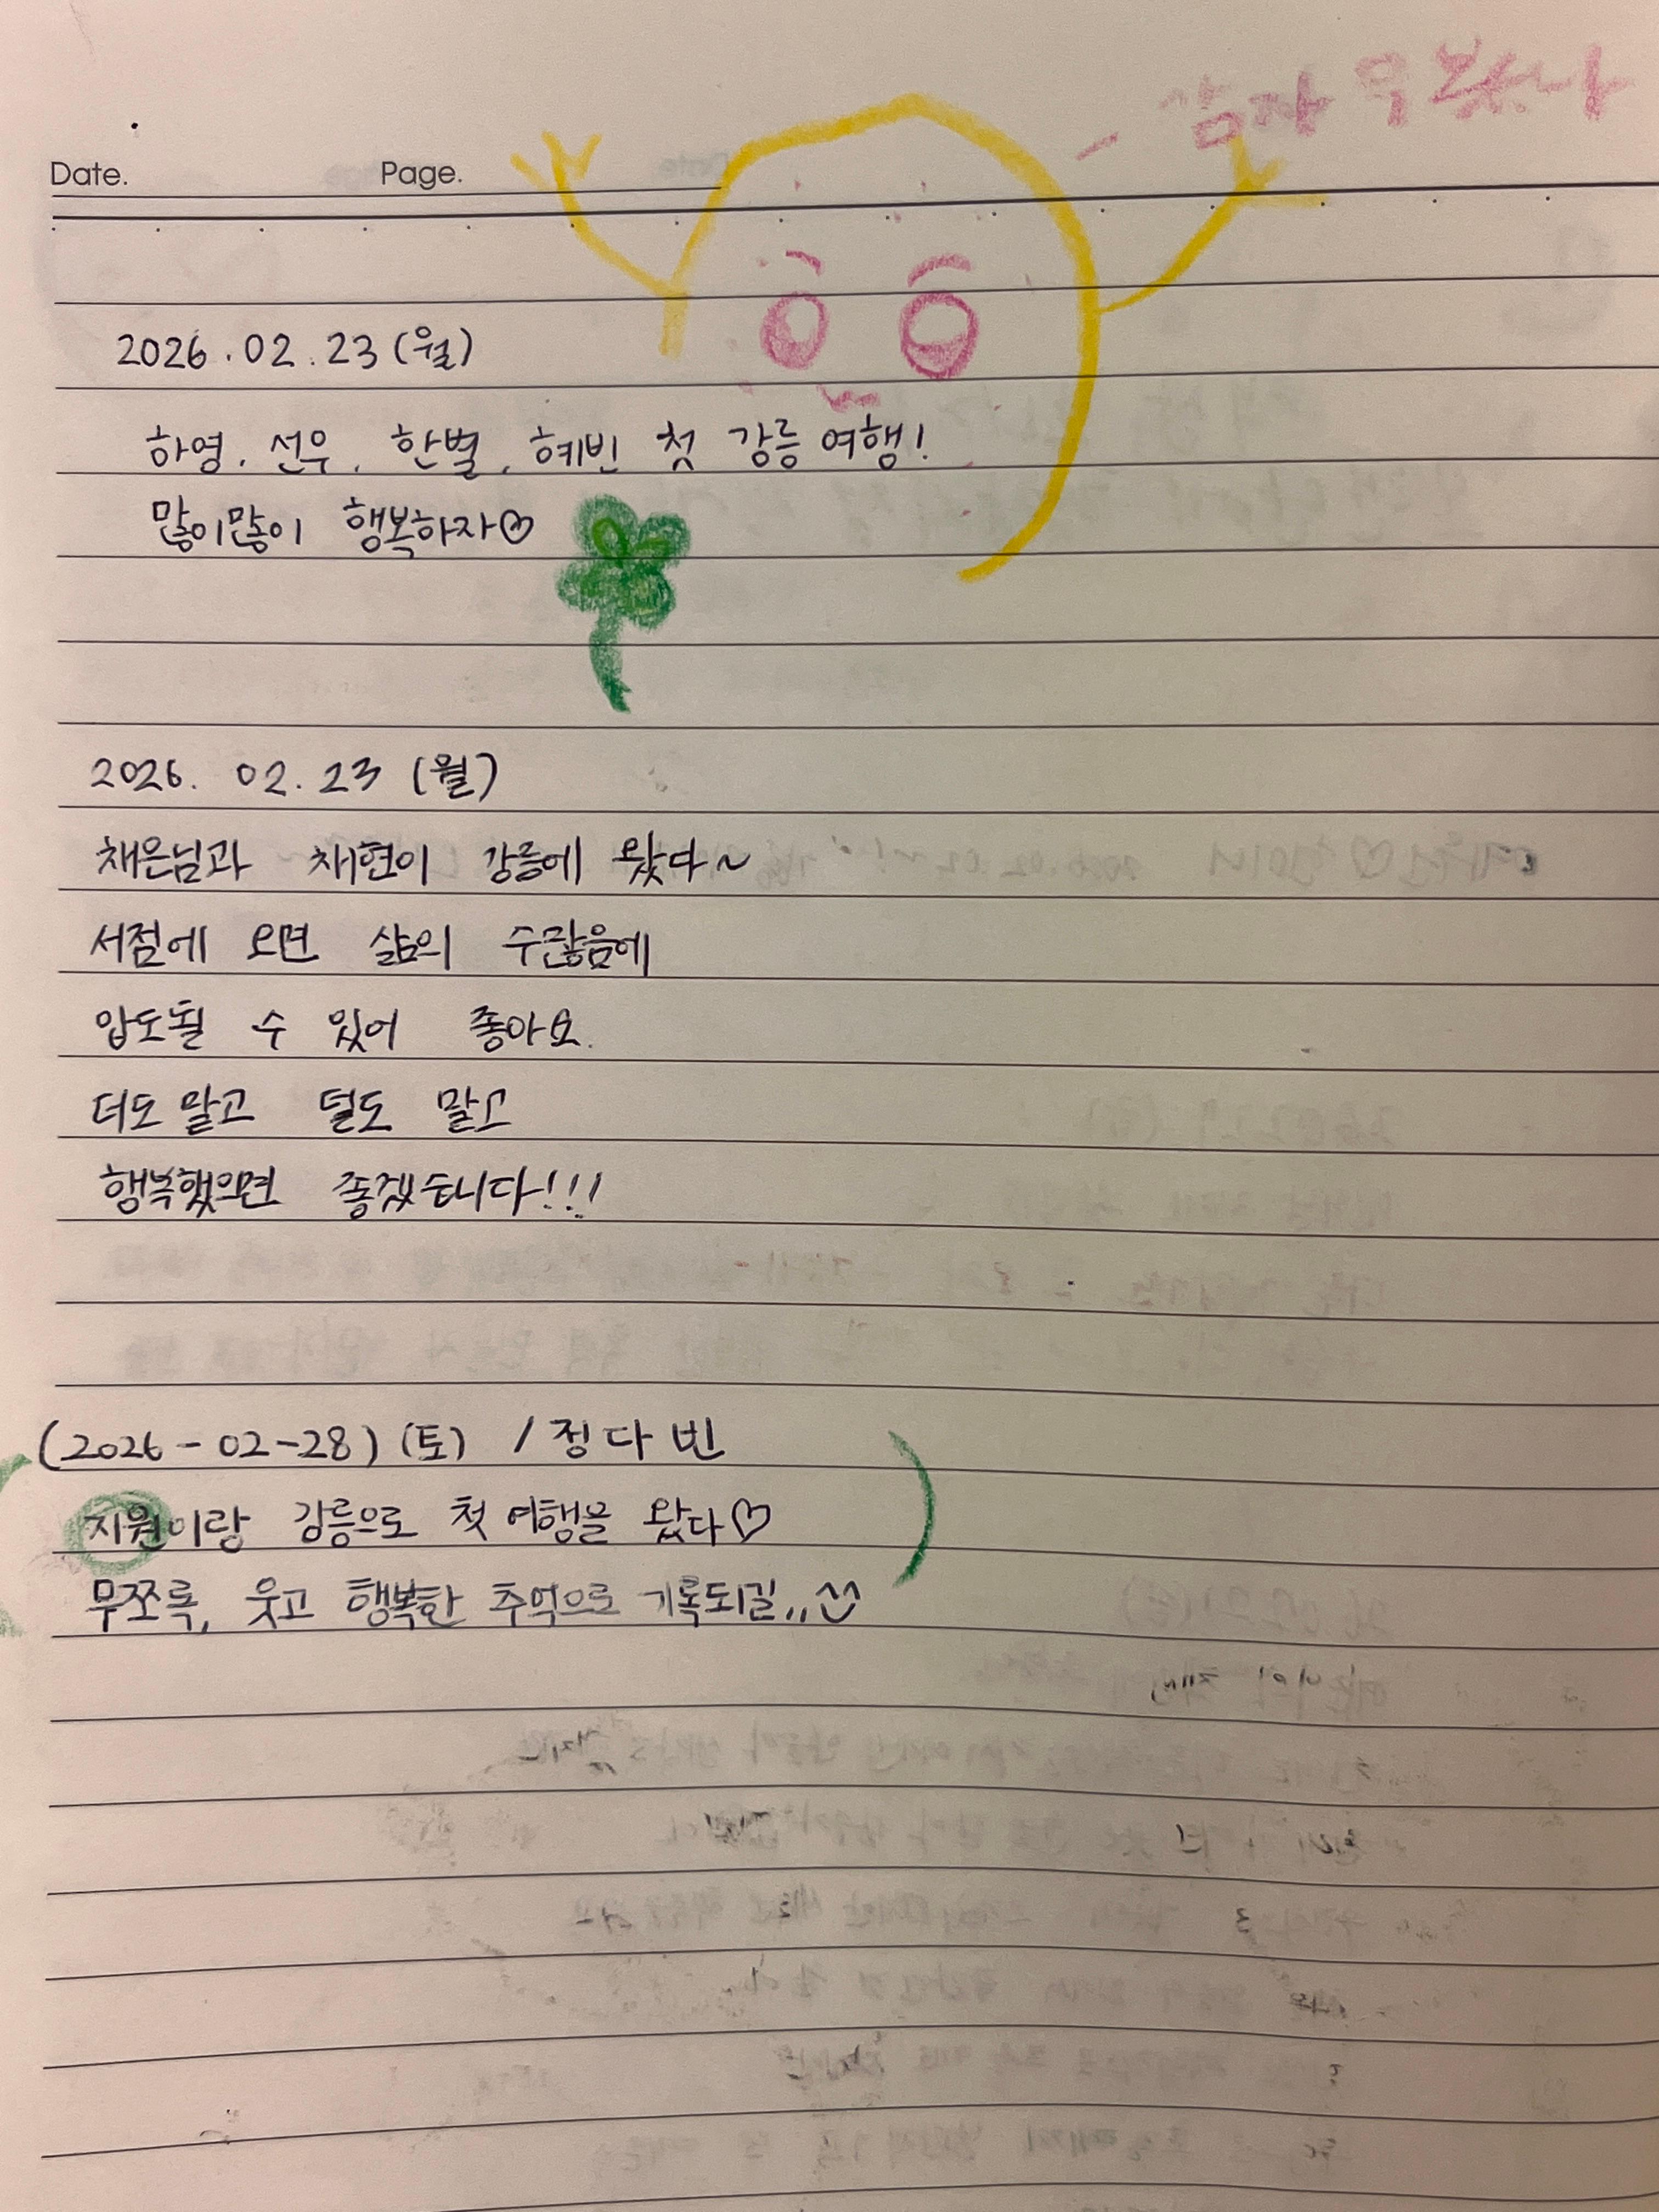 - 감자 우 봤나
Date. Page.
2026.02.23(월)
하영. 선우. 한별. 혜빈 첫 강릉 여행!
많이많이 행복하자♡
2026. 02.23 (월)
채은님과 채현이 강릉에 왔다~
서점에 오면 삶의 수많음에
압도될 수 있어 좋아요.
더도 말고 덜도 말고
행복했으면 좋겠습니다!!!
(2026-02-28) (토) / 정다빈
지원이랑 강릉으로 첫 여행을 왔다♡
무쪼록, 웃고 행복한 추억으로 기록되길,,^^